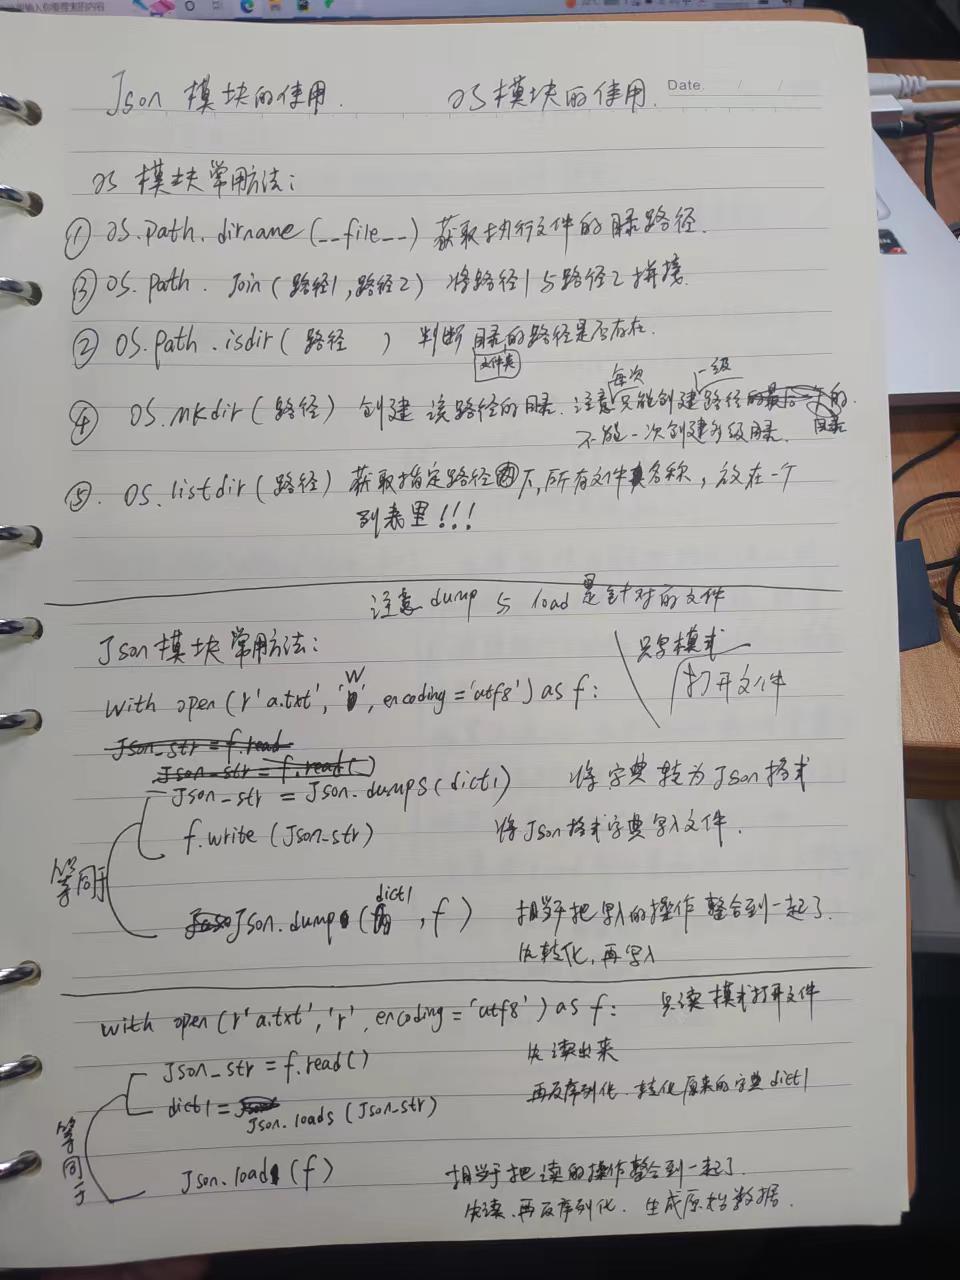 Json 模块的使用. OS模块的使用. Date. / /
OS 模块常用方法:
① OS.path.dirname(__file__) 获取执行文件的目录路径.
③ OS.path.Join(路径1,路径2) 将路径1与路径2拼接.
② OS.path.isdir(路径 ) 判断目录的路径是否存在.
文件夹
每次 一级
④ OS.mkdir(路径) 创建该路径的目录. 注意只能创建路径的
目录
不能一次创建多级目录.
⑤. OS.listdir(路径) 获取指定路径下,所有文件名称,放在一个
列表里!!!
注意 dump 与 load 是针对的文件
Json模块常用方法:
只写模式
打开文件
with open(r'a.txt','w', encoding='utf8') as f:
Json_str = f.read
Json_str = f.read()
Json_str = Json.dumps(dict1) 将字典转为Json格式
f.write(Json_str) 将Json格式字典写入文件.
等同于
Json.dump(dict1,f) 相当于把写入的操作整合到一起了.
先转化,再写入
with open(r'a.txt','r', encoding='utf8') as f: 只读模式打开文件
Json_str = f.read() 先读出来
dict1 = Json.loads(Json_str) 再反序列化.转化原来的字典dict1
等同于
Json.load(f) 相当于把读的操作整合到一起了.
先读.再反序列化.生成原始数据.